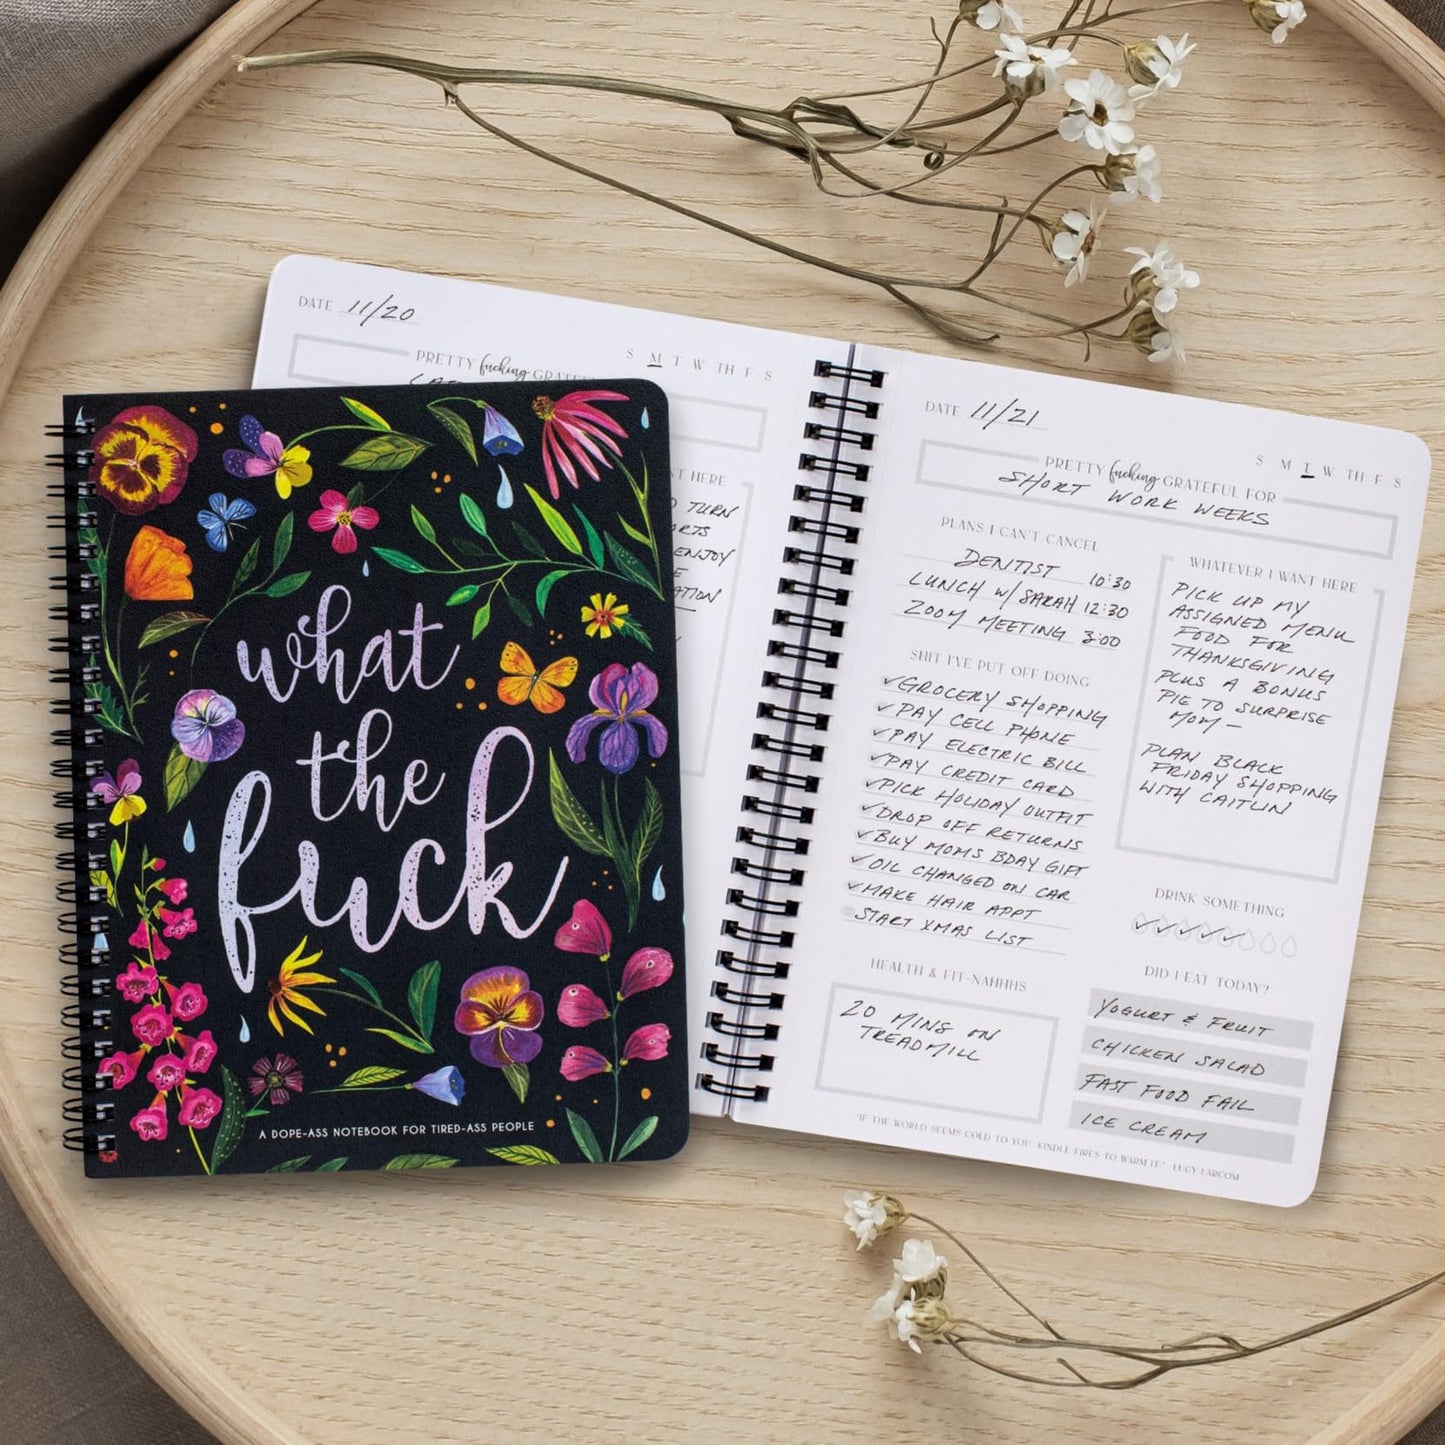 what
the
fuck
A DOPE-ASS NOTEBOOK FOR TIRED-ASS PEOPLE
DATE 11/20
S M T W TH F S
PRETTY fucking
NT HERE
TURN
ENJOY
DATE 11/21
S M T W TH F S
PRETTY fucking GRATEFUL FOR
SHORT WORK WEEKS
PLANS I CAN'T CANCEL
DENTIST 10:30
LUNCH W/ SARAH 12:30
ZOOM MEETING 3:00
SHIT I'VE PUT OFF DOING
✓GROCERY SHOPPING
✓PAY CELL PHONE
✓PAY ELECTRIC BILL
✓PAY CREDIT CARD
✓PICK HOLIDAY OUTFIT
✓DROP OFF RETURNS
✓BUY MOMS BDAY GIFT
✓OIL CHANGED ON CAR
✓MAKE HAIR APPT
START XMAS LIST
HEALTH & FIT-NAHHHS
20 MINS ON
TREADMILL
WHATEVER I WANT HERE
PICK UP MY
ASSIGNED MENU
FOOD FOR
THANKSGIVING
PLUS A BONUS
PIE TO SURPRISE
MOM –
PLAN BLACK
FRIDAY SHOPPING
WITH CAITLIN
DRINK SOMETHING
✓✓✓✓✓
DID I EAT TODAY?
YOGURT & FRUIT
CHICKEN SALAD
FAST FOOD FAIL
ICE CREAM
"IF THE WORLD SEEMS COLD TO YOU, KINDLE FIRES TO WARM IT." LUCY LARCOM